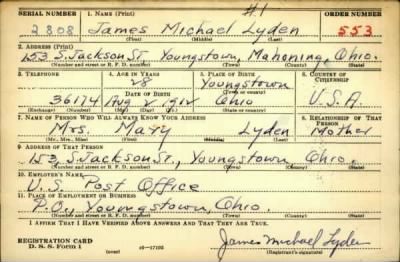 #1
SERIAL NUMBER 1. NAME (Print) ORDER NUMBER
2808 James Michael Lyden 553
(First) (Middle) (Last)
2. ADDRESS (Print)
153 S. Jackson St. Youngstown, Mahoning, Ohio.
(Number and street or R. F. D. number) (Town) (County) (State)
3. TELEPHONE 4. AGE IN YEARS 5. PLACE OF BIRTH 6. COUNTRY OF CITIZENSHIP
28 Youngstown
DATE OF BIRTH (Town or county)
36174 Aug 2 1912 Ohio U.S.A.
(Exchange) (Number) (Mo.) (Day) (Yr.) (State or country)
7. NAME OF PERSON WHO WILL ALWAYS KNOW YOUR ADDRESS 8. RELATIONSHIP OF THAT PERSON
Mrs. Mary Lyden Mother
(Mr., Mrs., Miss) (First) (Middle) (Last)
9. ADDRESS OF THAT PERSON
153 S. Jackson St., Youngstown Ohio.
(Number and street or R. F. D. number) (Town) (County) (State)
10. EMPLOYER'S NAME
U.S. Post Office
11. PLACE OF EMPLOYMENT OR BUSINESS
P.O., Youngstown, Ohio.
(Number and street or R. F. D. number) (Town) (County) (State)
I AFFIRM THAT I HAVE VERIFIED ABOVE ANSWERS AND THAT THEY ARE TRUE.
REGISTRATION CARD
D. S. S. Form 1 (over) 16—17105 James Michael Lyden
(Registrant's signature)